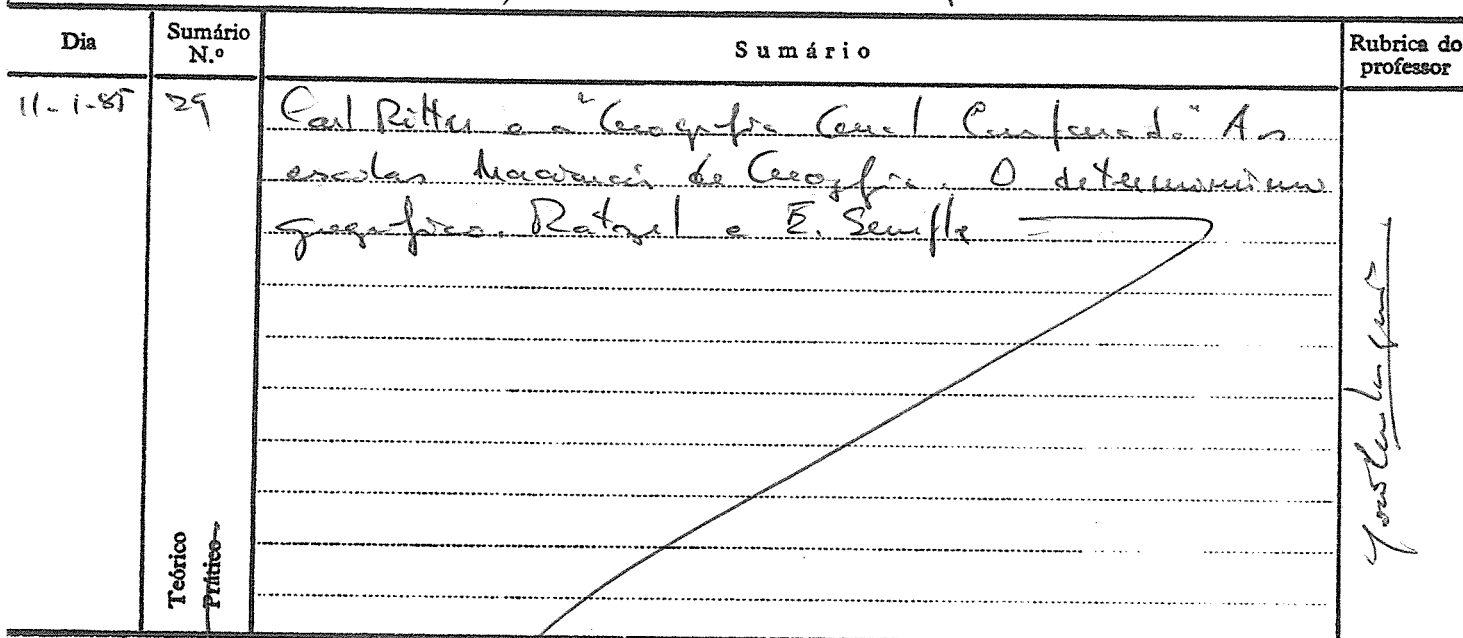 Dia
Sumário N.º
Sumário
Rubrica do professor
11-1-85
29
Carl Ritter e a "Geografia Geral Comparada" As
escolas Nacionais de Geografia. O determinismo
geografico. Ratzel e E. Semple
Teórico
Prático